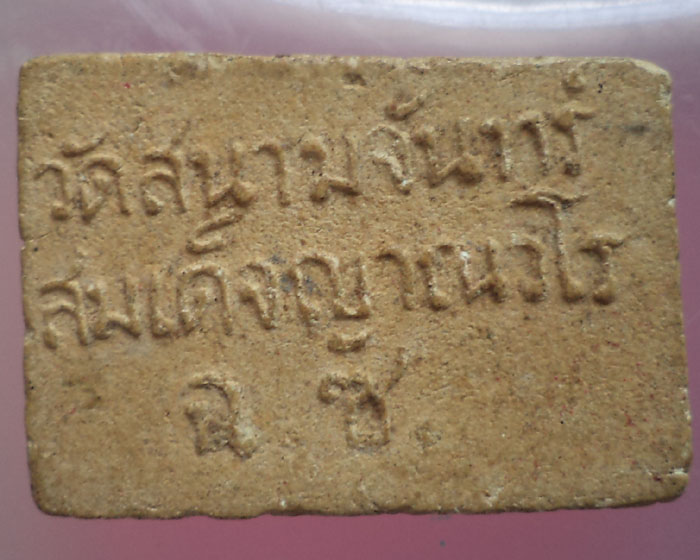 วัดสนามจันทร์
สมเด็จญาณวโร
ฉ ซ้